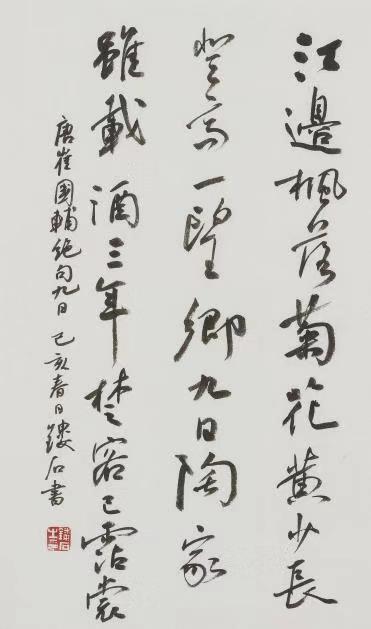 江邊楓落菊花黃少長
登高一望鄉九日陶家
雖載酒三年楚客已霑裳
唐崔國輔絕句九日 己亥春日鏤石書